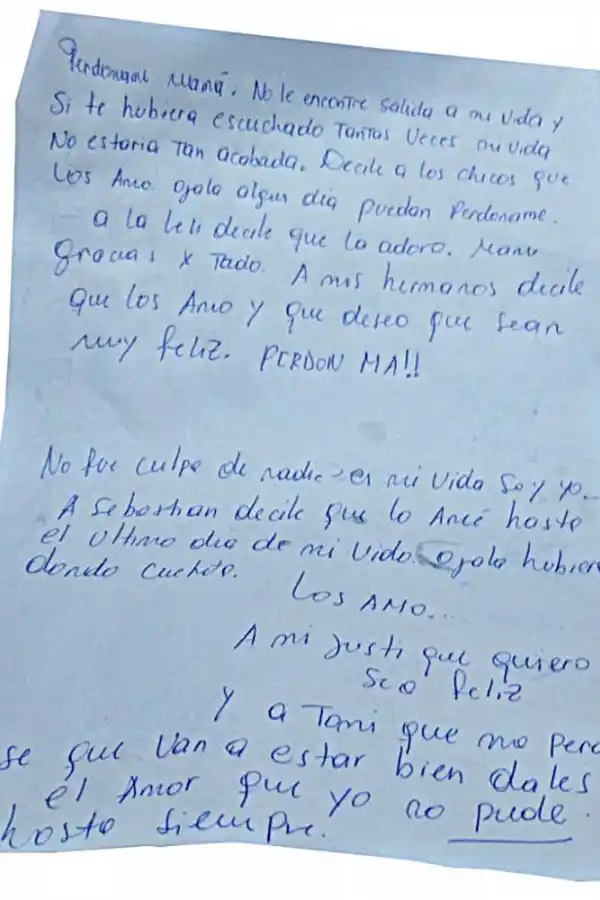 Perdoname Mamá. No le encontre salida a mi vida y
Si te hubiera escuchado Tantas Veces mi vida
No estaria Tan acabada. Decile a los chicos que
los Amo. Ojala algun dia puedan Perdoname.
a la Leli decile que la adoro. Manu
gracias x Todo. A mis hermanos decile
que los Amo y que deseo que sean
muy feliz. PERDON MA!!
No fue culpa de nadie es mi Vida Soy yo...
A Sebastian decile que lo Amé hasta
el ultimo dia de mi Vida. Ojala hubiera
donde cuenta.
Los AMO...
A mi Justi que quiero
Sea feliz
Y a Tami que me Perd
se que Van a estar bien dales
el Amor que yo no pude.
hasta siempre.